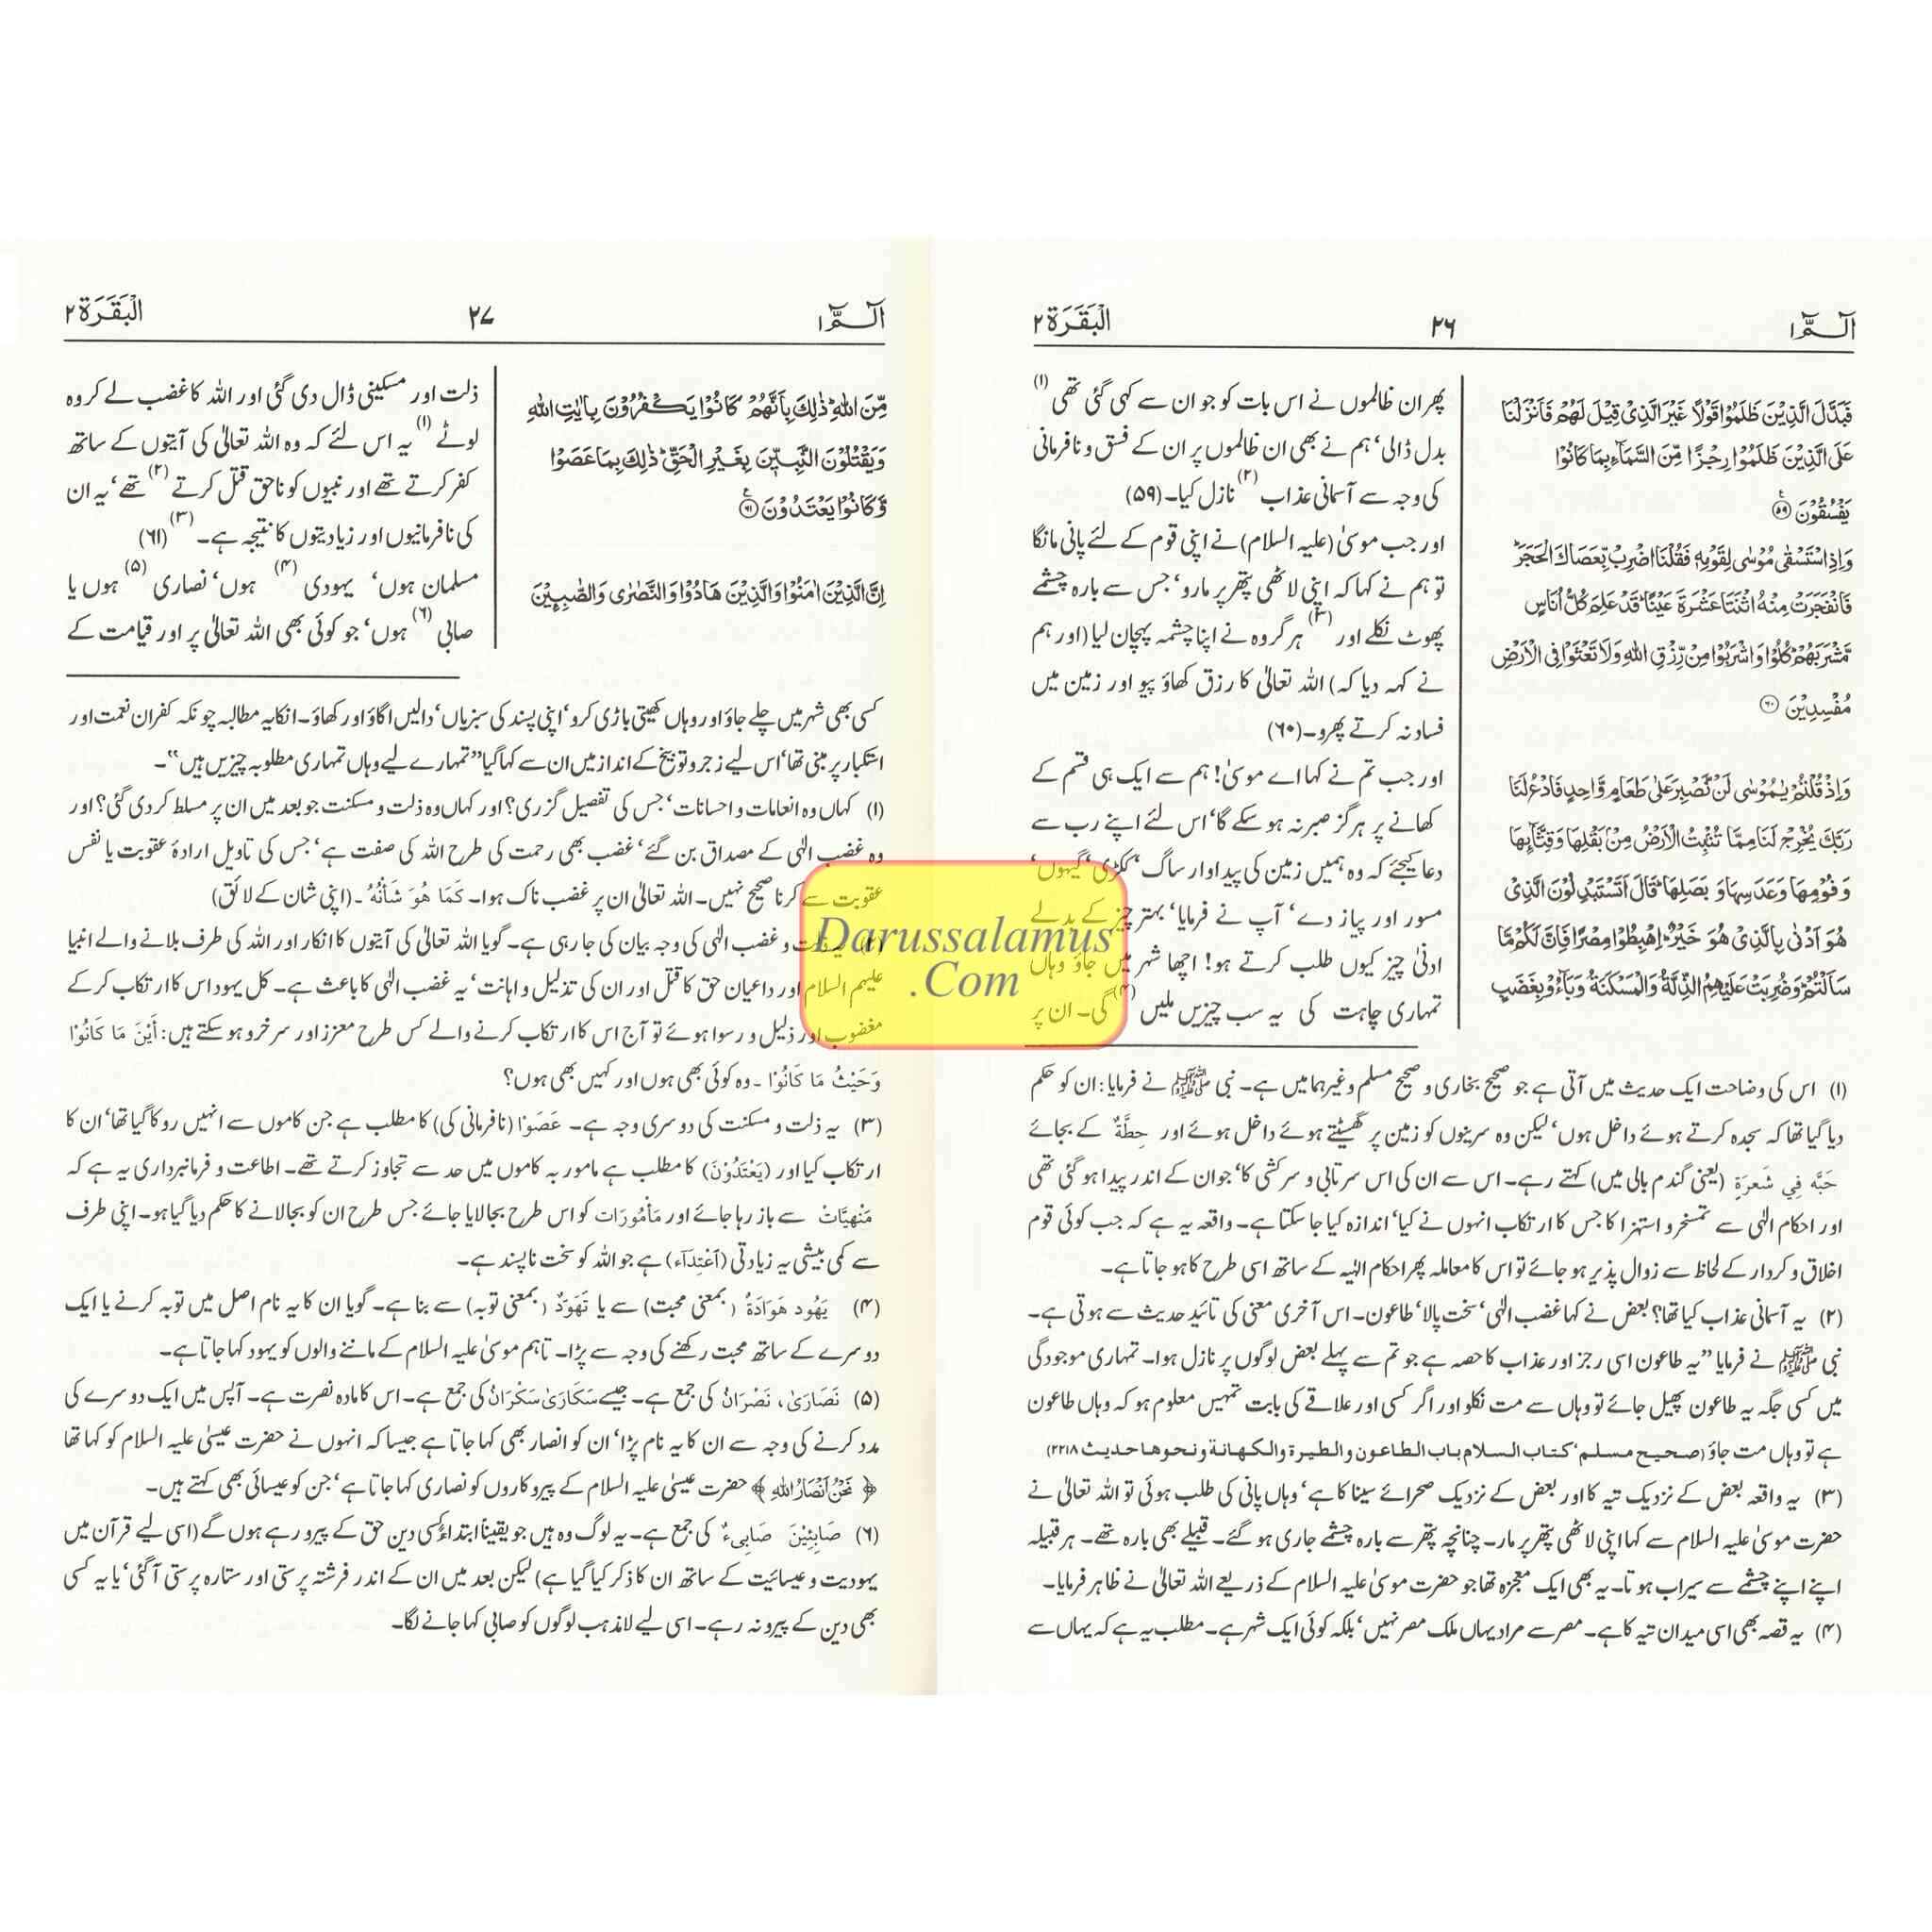 الٓـمّٓ ١ ٢٦ الْبَقَرَة ٢
فَبَدَّلَ الَّذِيْنَ ظَلَمُوْا قَوْلًا غَيْرَ الَّذِيْ قِيْلَ لَهُمْ فَاَنْزَلْنَا
عَلَى الَّذِيْنَ ظَلَمُوْا رِجْزًا مِّنَ السَّمَآءِ بِمَا كَانُوْا
يَفْسُقُوْنَ ۝٥٩
وَاِذِ اسْتَسْقٰى مُوْسٰى لِقَوْمِهٖ فَقُلْنَا اضْرِبْ بِّعَصَاكَ الْحَجَرَ ؕ
فَانْفَجَرَتْ مِنْهُ اثْنَتَا عَشْرَةَ عَيْنًا ؕ قَدْ عَلِمَ كُلُّ اُنَاسٍ
مَّشْرَبَهُمْ ؕ كُلُوْا وَاشْرَبُوْا مِنْ رِّزْقِ اللهِ وَلَا تَعْثَوْا فِى الْاَرْضِ
مُفْسِدِيْنَ ۝٦٠
وَاِذْ قُلْتُمْ يٰمُوْسٰى لَنْ نَّصْبِرَ عَلٰى طَعَامٍ وَّاحِدٍ فَادْعُ لَنَا
رَبَّكَ يُخْرِجْ لَنَا مِمَّا تُنْۢبِتُ الْاَرْضُ مِنْۢ بَقْلِهَا وَقِثَّآئِهَا
وَفُوْمِهَا وَعَدَسِهَا وَبَصَلِهَا ؕ قَالَ اَتَسْتَبْدِلُوْنَ الَّذِيْ
هُوَ اَدْنٰى بِالَّذِيْ هُوَ خَيْرٌ ؕ اِهْبِطُوْا مِصْرًا فَاِنَّ لَكُمْ مَّا
سَاَلْتُمْ ؕ وَضُرِبَتْ عَلَيْهِمُ الذِّلَّةُ وَالْمَسْكَنَةُ وَبَآءُوْ بِغَضَبٍ
پھر ان ظالموں نے اس بات کو جو ان سے کہی گئی تھی (۱)
بدل ڈالی، ہم نے بھی ان ظالموں پر ان کے فسق و نافرمانی
کی وجہ سے آسمانی عذاب (۲) نازل کیا۔ (۵۹)
اور جب موسیٰ (علیہ السلام) نے اپنی قوم کے لئے پانی مانگا
تو ہم نے کہا کہ اپنی لاٹھی پتھر پر مارو، جس سے بارہ چشمے
پھوٹ نکلے اور (۳) ہر گروہ نے اپنا چشمہ پہچان لیا (اور ہم
نے کہہ دیا کہ) اللہ تعالیٰ کا رزق کھاؤ پیو اور زمین میں
فساد نہ کرتے پھرو۔ (۶۰)
اور جب تم نے کہا اے موسیٰ! ہم سے ایک ہی قسم کے
کھانے پر ہرگز صبر نہ ہو سکے گا، اس لئے اپنے رب سے
دعا کیجئے کہ وہ ہمیں زمین کی پیداوار ساگ، ککڑی، گیہوں،
مسور اور پیاز دے، آپ نے فرمایا، بہتر چیز کے بدلے
ادنیٰ چیز کیوں طلب کرتے ہو! اچھا شہر میں جاؤ وہاں
تمہاری چاہت کی یہ سب چیزیں ملیں (۴) گی۔ ان پر
(۱) اس کی وضاحت ایک حدیث میں آتی ہے جو صحیح بخاری و صحیح مسلم وغیرہما میں ہے۔ نبی ﷺ نے فرمایا: ان کو حکم
دیا گیا تھا کہ سجدہ کرتے ہوئے داخل ہوں، لیکن وہ سرینوں کو زمین پر گھسیٹتے ہوئے داخل ہوئے اور حِطَّةٌ کے بجائے
حَبَّه فِي شَعرَةٍ (یعنی گندم بالی میں) کہتے رہے۔ اس سے ان کی اس سرتابی و سرکشی کا، جو ان کے اندر پیدا ہو گئی تھی
اور احکام الٰہی سے تمسخر و استہزا کا جس کا ارتکاب انہوں نے کیا، اندازہ کیا جا سکتا ہے۔ واقعہ یہ ہے کہ جب کوئی قوم
اخلاق و کردار کے لحاظ سے زوال پذیر ہو جائے تو اس کا معاملہ پھر احکام الٰہیہ کے ساتھ اسی طرح کا ہو جاتا ہے۔
(۲) یہ آسمانی عذاب کیا تھا؟ بعض نے کہا غضب الٰہی، سخت پالا، طاعون۔ اس آخری معنی کی تائید حدیث سے ہوتی ہے۔
نبی ﷺ نے فرمایا "یہ طاعون اسی رجز اور عذاب کا حصہ ہے جو تم سے پہلے بعض لوگوں پر نازل ہوا۔ تمہاری موجودگی
میں کسی جگہ یہ طاعون پھیل جائے تو وہاں سے مت نکلو اور اگر کسی اور علاقے کی بابت تمہیں معلوم ہو کہ وہاں طاعون
ہے تو وہاں مت جاؤ (صحیح مسلم، کتاب السلام باب الطاعون والطیرة والکهانة ونحوها حدیث ٢٢١٨)
(۳) یہ واقعہ بعض کے نزدیک تیہ کا اور بعض کے نزدیک صحرائے سینا کا ہے، وہاں پانی کی طلب ہوئی تو اللہ تعالیٰ نے
حضرت موسیٰ علیہ السلام سے کہا اپنی لاٹھی پتھر پر مار۔ چنانچہ پتھر سے بارہ چشمے جاری ہو گئے۔ قبیلے بھی بارہ تھے۔ ہر قبیلہ
اپنے اپنے چشمے سے سیراب ہوتا۔ یہ بھی ایک معجزہ تھا جو حضرت موسیٰ علیہ السلام کے ذریعے اللہ تعالیٰ نے ظاہر فرمایا۔
(۴) یہ قصہ بھی اسی میدان تیہ کا ہے۔ مصر سے مراد یہاں ملک مصر نہیں، بلکہ کوئی ایک شہر ہے۔ مطلب یہ ہے کہ یہاں سے
الٓـمّٓ ١ ٢٧ الْبَقَرَة ٢
مِّنَ اللهِ ؕ ذٰلِكَ بِاَنَّهُمْ كَانُوْا يَكْفُرُوْنَ بِاٰيٰتِ اللهِ
وَيَقْتُلُوْنَ النَّبِيّٖنَ بِغَيْرِ الْحَقِّ ؕ ذٰلِكَ بِمَا عَصَوْا
وَّكَانُوْا يَعْتَدُوْنَ ۝٦١
اِنَّ الَّذِيْنَ اٰمَنُوْا وَالَّذِيْنَ هَادُوْا وَالنَّصٰرٰى وَالصّٰبِـِٕيْنَ
ذلت اور مسکینی ڈال دی گئی اور اللہ کا غضب لے کر وہ
لوٹے (۱) یہ اس لئے کہ وہ اللہ تعالیٰ کی آیتوں کے ساتھ
کفر کرتے تھے اور نبیوں کو ناحق قتل کرتے (۲) تھے، یہ ان
کی نافرمانیوں اور زیادتیوں کا نتیجہ ہے۔ (۳) (۶۱)
مسلمان ہوں، یہودی (۴) ہوں، نصاریٰ (۵) ہوں یا
صابی (۶) ہوں، جو کوئی بھی اللہ تعالیٰ پر اور قیامت کے
کسی بھی شہر میں چلے جاؤ اور وہاں کھیتی باڑی کرو، اپنی پسند کی سبزیاں، دالیں اگاؤ اور کھاؤ۔ انکا یہ مطالبہ چونکہ کفران نعمت اور
استکبار پر مبنی تھا، اس لیے زجر و توبیخ کے انداز میں ان سے کہا گیا "تمہارے لیے وہاں تمہاری مطلوبہ چیزیں ہیں"۔
(۱) کہاں وہ انعامات و احسانات، جس کی تفصیل گزری؟ اور کہاں وہ ذلت و مسکنت جو بعد میں ان پر مسلط کر دی گئی؟ اور
وہ غضب الٰہی کے مصداق بن گئے، غضب بھی رحمت کی طرح اللہ کی صفت ہے، جس کی تاویل ارادۂ عقوبت یا نفس
عقوبت سے کرنا صحیح نہیں۔ اللہ تعالیٰ ان پر غضب ناک ہوا۔ كَمَا هُوَ شَأْنُهُ۔ (اپنی شان کے لائق)
(۲) یہ ذلت و غضب الٰہی کی وجہ بیان کی جا رہی ہے۔ گویا اللہ تعالیٰ کی آیتوں کا انکار اور اللہ کی طرف بلانے والے انبیا
علیہم السلام اور داعیان حق کا قتل اور ان کی تذلیل و اہانت، یہ غضب الٰہی کا باعث ہے۔ کل یہود اس کا ارتکاب کر کے
مغضوب اور ذلیل و رسوا ہوئے تو آج اس کا ارتکاب کرنے والے کس طرح معزز اور سرخرو ہو سکتے ہیں: أَيْنَ مَا كَانُوْا
وَحَيْثُ مَا كَانُوْا۔ وہ کوئی بھی ہوں اور کہیں بھی ہوں؟
(۳) یہ ذلت و مسکنت کی دوسری وجہ ہے۔ عَصَوْا (نافرمانی کی) کا مطلب ہے جن کاموں سے انہیں روکا گیا تھا، ان کا
ارتکاب کیا اور (يَعْتَدُوْنَ) کا مطلب ہے مامور بہ کاموں میں حد سے تجاوز کرتے تھے۔ اطاعت و فرمانبرداری یہ ہے کہ
مَنْهِيَّاتْ سے باز رہا جائے اور مَأْمُورَات کو اس طرح بجالایا جائے جس طرح ان کو بجالانے کا حکم دیا گیا ہو۔ اپنی طرف
سے کمی بیشی یہ زیادتی (اعْتِدَآء) ہے جو اللہ کو سخت ناپسند ہے۔
(۴) يَهُود هَوَادَةٌ (بمعنی محبت) سے یا تَهَوَّدٌ (بمعنی توبہ) سے بنا ہے۔ گویا ان کا یہ نام اصل میں توبہ کرنے یا ایک
دوسرے کے ساتھ محبت رکھنے کی وجہ سے پڑا۔ تاہم موسیٰ علیہ السلام کے ماننے والوں کو یہود کہا جاتا ہے۔
(۵) نَصَارَىٰ، نَصْرَانُ کی جمع ہے۔ جیسے سَكَارَىٰ سَكْرَانُ کی جمع ہے۔ اس کا مادہ نصرت ہے۔ آپس میں ایک دوسرے کی
مدد کرنے کی وجہ سے ان کا یہ نام پڑا، ان کو انصار بھی کہا جاتا ہے جیسا کہ انہوں نے حضرت عیسیٰ علیہ السلام کو کہا تھا
﴿ نَحْنُ اَنْصَارُ اللهِ ﴾ حضرت عیسیٰ علیہ السلام کے پیروکاروں کو نصاریٰ کہا جاتا ہے، جن کو عیسائی بھی کہتے ہیں۔
(۶) صَابِئِيْنَ صَابِیءٌ کی جمع ہے۔ یہ لوگ وہ ہیں جو یقیناً ابتداءً کسی دین حق کے پیرو رہے ہوں گے (اسی لیے قرآن میں
یہودیت و عیسائیت کے ساتھ ان کا ذکر کیا گیا ہے) لیکن بعد میں ان کے اندر فرشتہ پرستی اور ستارہ پرستی آ گئی، یا یہ کسی
بھی دین کے پیرو نہ رہے۔ اسی لیے لامذہب لوگوں کو صابی کہا جانے لگا۔
Darussalamus
.Com